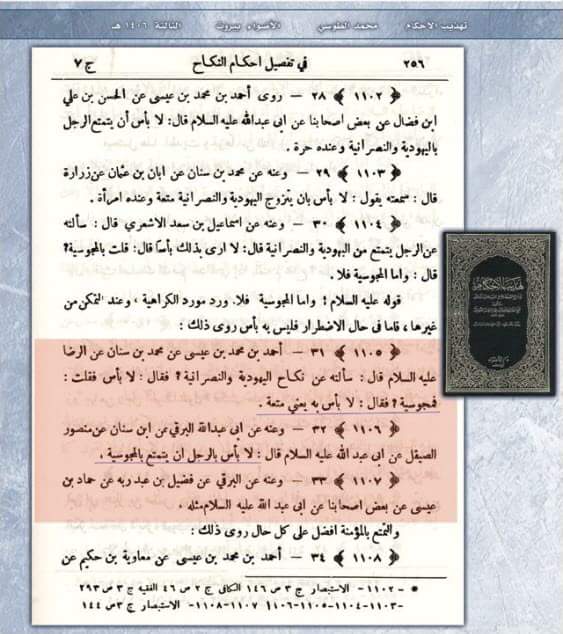 تهذيب الأحكام محمد الطوسي الأضواء بيروت الثالثة ١٤٠٦ هـ
٢٥٦ في تفصيل احكام النكاح ج ٧
﴿ ١١٠٢ ﴾ ٢٨ — روى أحمد بن محمد بن عيسى عن الحسن بن علي
ابن فضال عن بعض اصحابنا عن ابى عبدالله عليه السلام قال : لا بأس أن يتمتع الرجل
باليهودية والنصرانية وعنده حرة .
﴿ ١١٠٣ ﴾ ٢٩ — وعنه عن محمد بن سنان عن ابان بن عثمان عن زرارة
قال : سمعته يقول : لا بأس بان يتزوج اليهودية والنصرانية متعة وعنده امرأة .
﴿ ١١٠٤ ﴾ ٣٠ — وعنه عن اسماعيل بن سعد الاشعري قال : سألته
عن الرجل يتمتع من اليهودية والنصرانية قال : لا ارى بذلك بأسا قال : قلت بالمجوسية؟
قال : واما المجوسية فلا .
قوله عليه السلام : واما المجوسية فلا. ورد مورد الكراهية ، وعند التمكن من
غيرها ، فاما فى حال الاضطرار فليس به بأس روى ذلك :
﴿ ١١٠٥ ﴾ ٣١ — أحمد بن محمد بن عيسى عن محمد بن سنان عن الرضا
عليه السلام قال : سألته عن نكاح اليهودية والنصرانية ؟ فقال : لا بأس فقلت :
فمجوسية ؟ فقال : لا بأس به يعني متعة .
﴿ ١١٠٦ ﴾ ٣٢ — وعنه عن ابى عبدالله البرقي عن ابن سنان عن منصور
الصيقل عن ابى عبد الله عليه السلام قال : لا بأس بالرجل ان يتمتع بالمجوسية .
﴿ ١١٠٧ ﴾ ٣٣ — وعنه عن البرقي عن فضيل بن عبد ربه عن حماد بن
عيسى عن بعض اصحابنا عن ابى عبد الله عليه السلام مثله .
والتمتع بالمؤمنة افضل على كل حال روى ذلك :
﴿ ١١٠٨ ﴾ ٣٤ — أحمد بن محمد بن عيسى عن معاوية بن حكيم عن
* — ١١٠٢ — الاستبصار ج ٣ ص ١٤٦ الكافى ج ٢ ص ٤٦ الفقيه ج ٣ ص ٢٩٣
— ١١٠٣ — ١١٠٤ — ١١٠٥ — ١١٠٦ — ١١٠٧ — ١١٠٨ — الاستبصار ج ٣ ص ١٤٤
تهذيب الأحكام